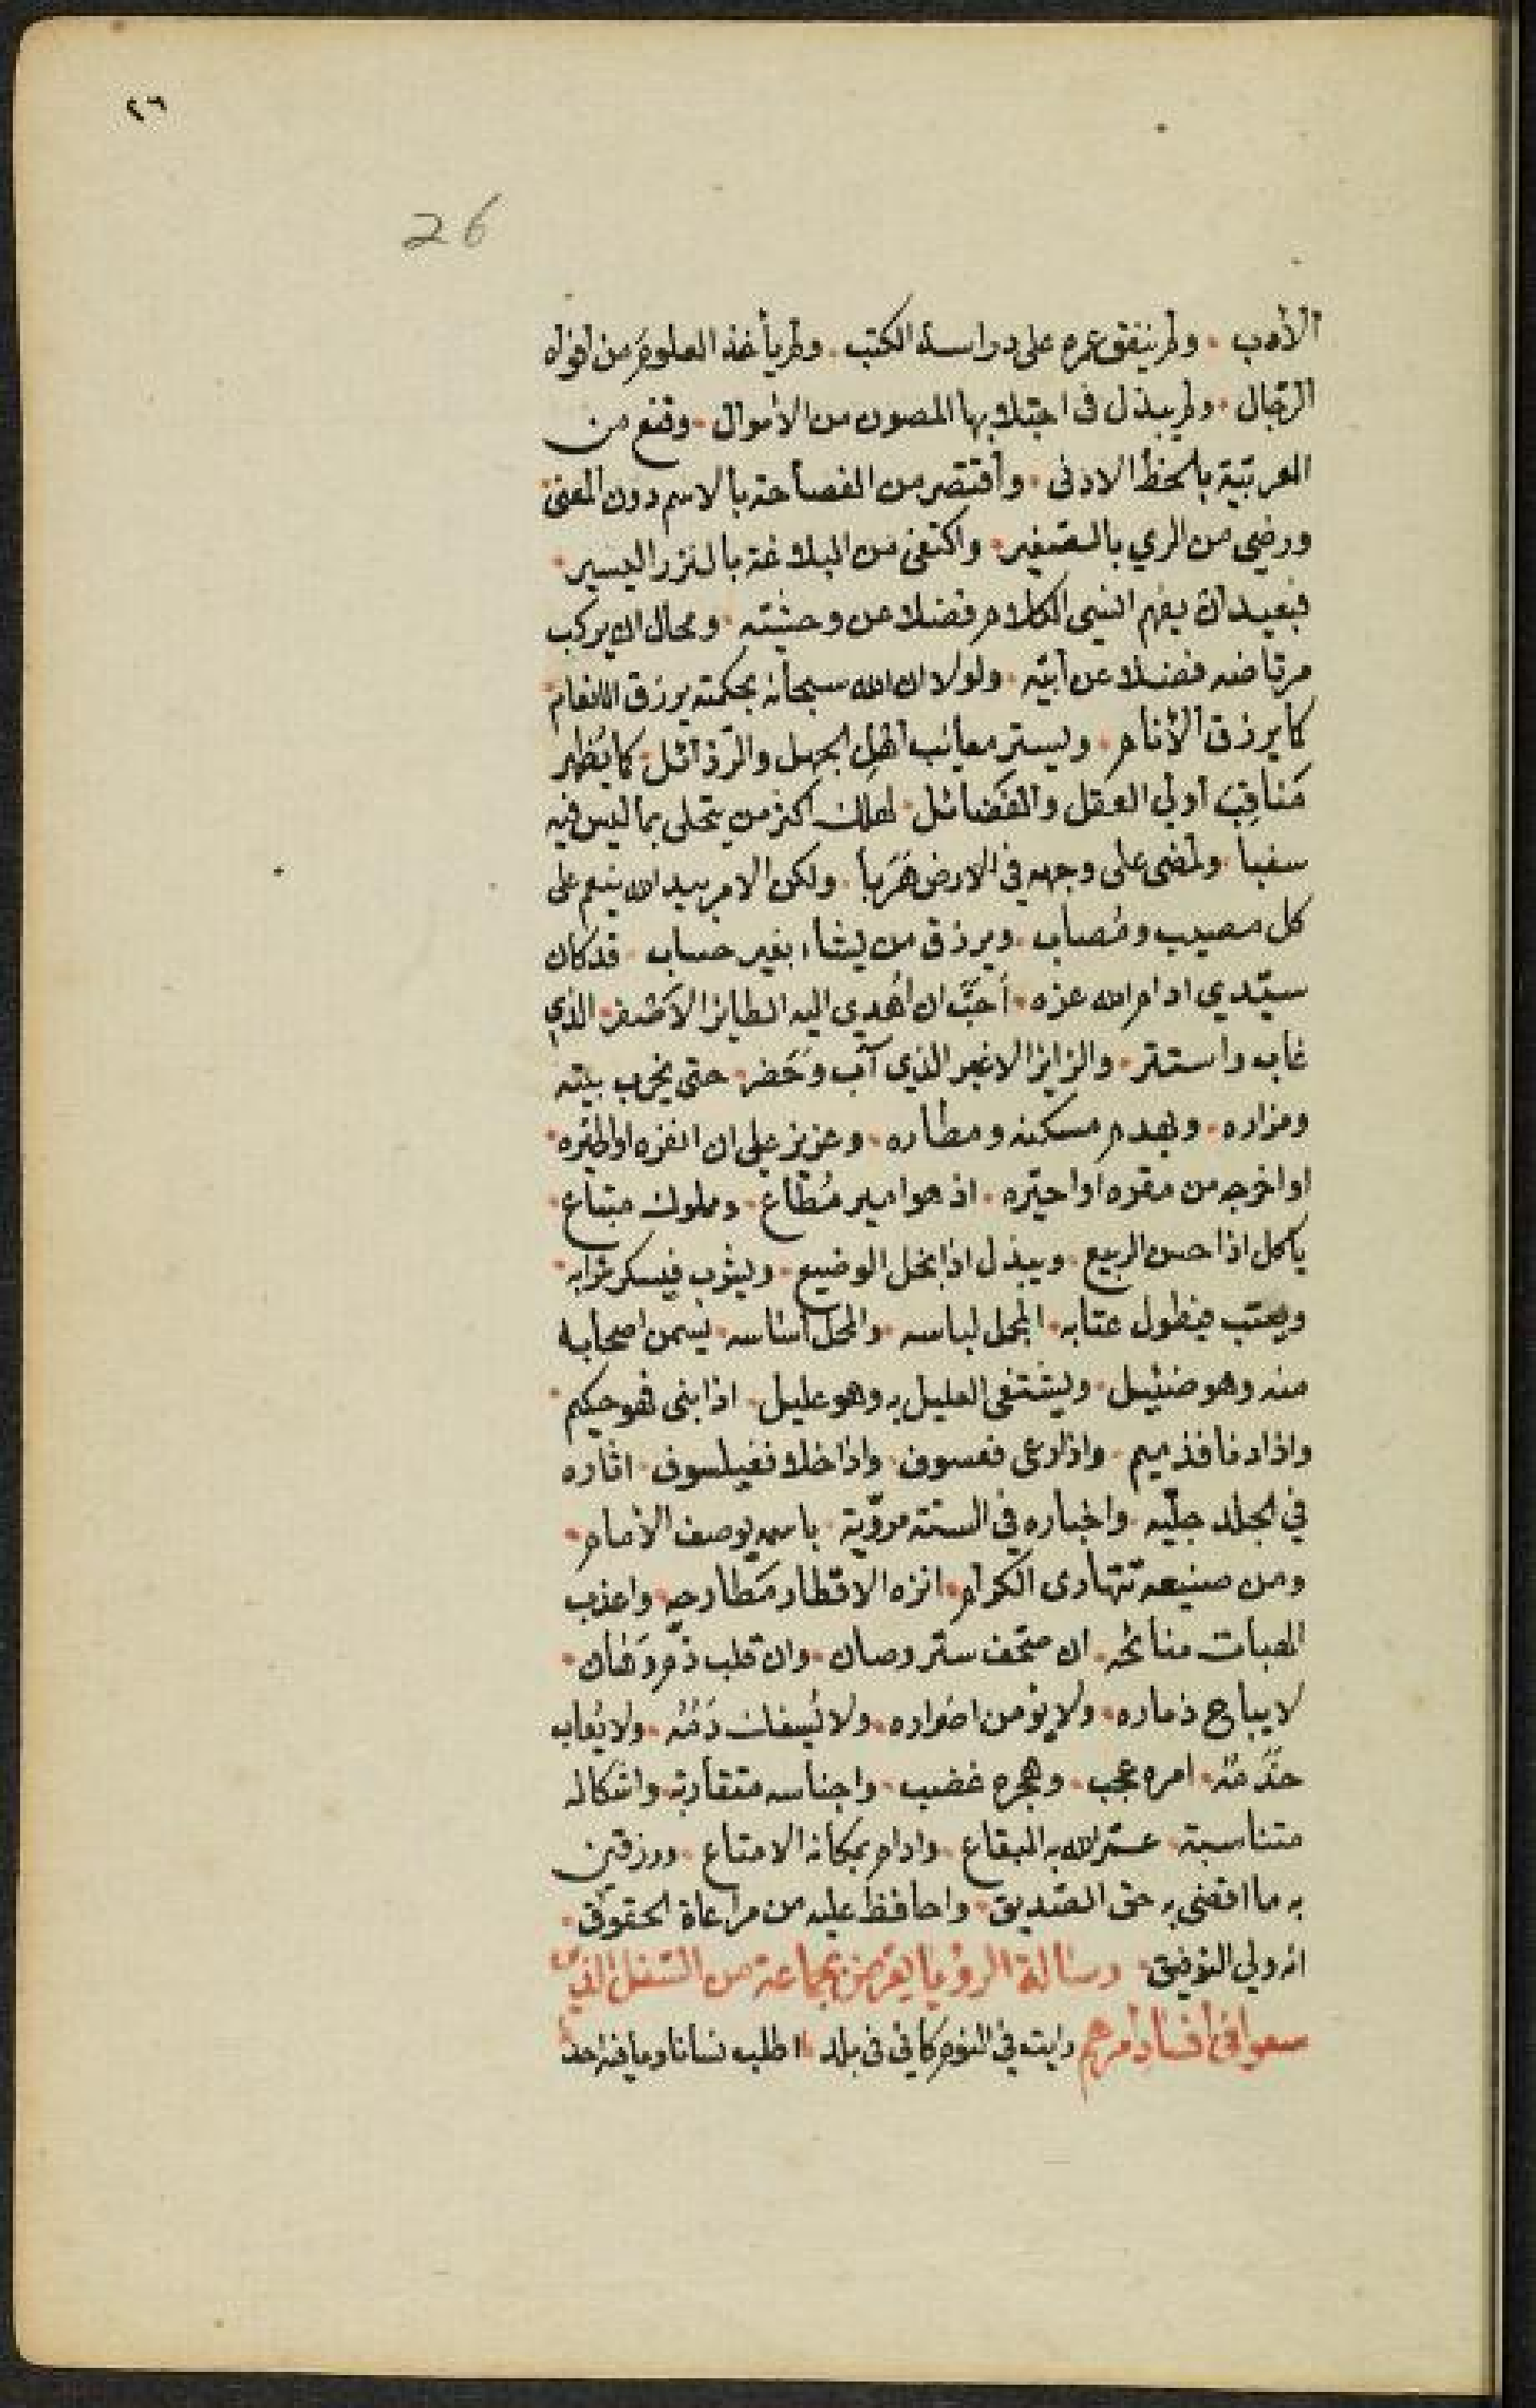 ٢٦
26
الأدب • ولم ينفق عمره على دراسة الكتب • ولم يأخذ العلوم من افواه
الرّجال • ولم يبذل في اجتلابها المصون من الأموال • وقنع من
العربيّة بالحظ الادنى • واقتصر من الفصاحة بالاسم دون المعنى
ورضي من الري بالتصغير • واكتفى من البلاغة بالنزر اليسير •
فبعيد ان يفهم انسي الكلام فضلا عن وحشيّه • ومحال ان يركب
مرتاضه فضلا عن أبيّه • ولولا ان الله سبحانه بحكمته يرزق الانعام
كما يرزق الأنام • ويستر معائب أهل الجهل والرّذائل • كما يُظهر
مَناقِبَ أولي العقل والفَضائل • لهلك اكثر من يتحلى بما ليس فيه
سغباً • ولمضى على وجهه في الارض هَرَباً • ولكن الامر بيد الله ينعم على
كل مصيب ومُصاب • ويرزق من يشاء بغير حساب • قد كان
سيّدي ادام الله عزه • أحَبَّ ان أهدي اليه الطائر الاصفر • الذي
غاب واستتر • والزائر الاغبر الذي آب وحَضر • حتى يخرب بيته
ومزاره • ويهدم مسكنه ومطاره • وعزيز علي ان انفره او اطيّره •
او اخرجه من مقره او احيّره • اذ هو امير مُطَاع • ومملوك مبتاع •
ياكل اذا حسن الربيع • ويبذل اذا بخل الوضيع • ويشرب فيسكر شرابه •
ويعتب فيطول عتابه • المحل لباسه • والمحل اساسه • يسمن اصحابه
منه وهو ضئيل • ويشتفى العليل به وهو عليل • اذا بنى فهو حكيم •
واذا دنا فذميم • واذا رعى فعسوف • واذا خلا ففيلسوف • اثاره
في الجلد جليّه • واخباره في السنة مرويّة • باسمه يوصف الأمام •
ومن صنيعه تتهادى الكرام • انزه الاقطار مَطارحه • واعذب
الهبات منائحه • ان صحف ستر وصان • وان قلب ذم وَهَان •
لا يباح ذماره • ولا يؤمن اضراره • ولا يُسفك دَمُهُ • ولا يُعاب
خدَمُهُ • امره عجب • وهجره غضب • واجناسه متقاربة • واشكاله
متناسبة • عمّر الله به البقاع • وادام بمكانه الامتاع • ورزقني
به ما اقضي به حق الصّديق • واحافظ عليه من مراعاة الحقوق •
انه ولي التوفيق • رسالة الرؤيا يعرّض بجماعة من السّفل الذين
سعوا في افساد امرهم رايت في النوم كاني في بلد • اطلب انسانا وما فيه احد